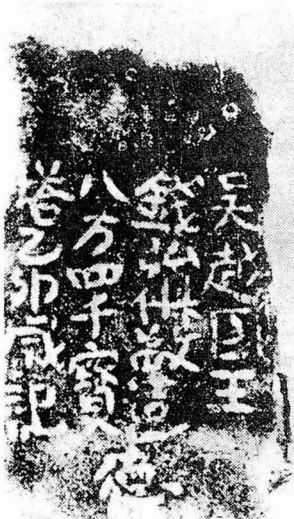 吴越国王
錢弘俶敬造
八万四千寶
荅乙卯歲記
德